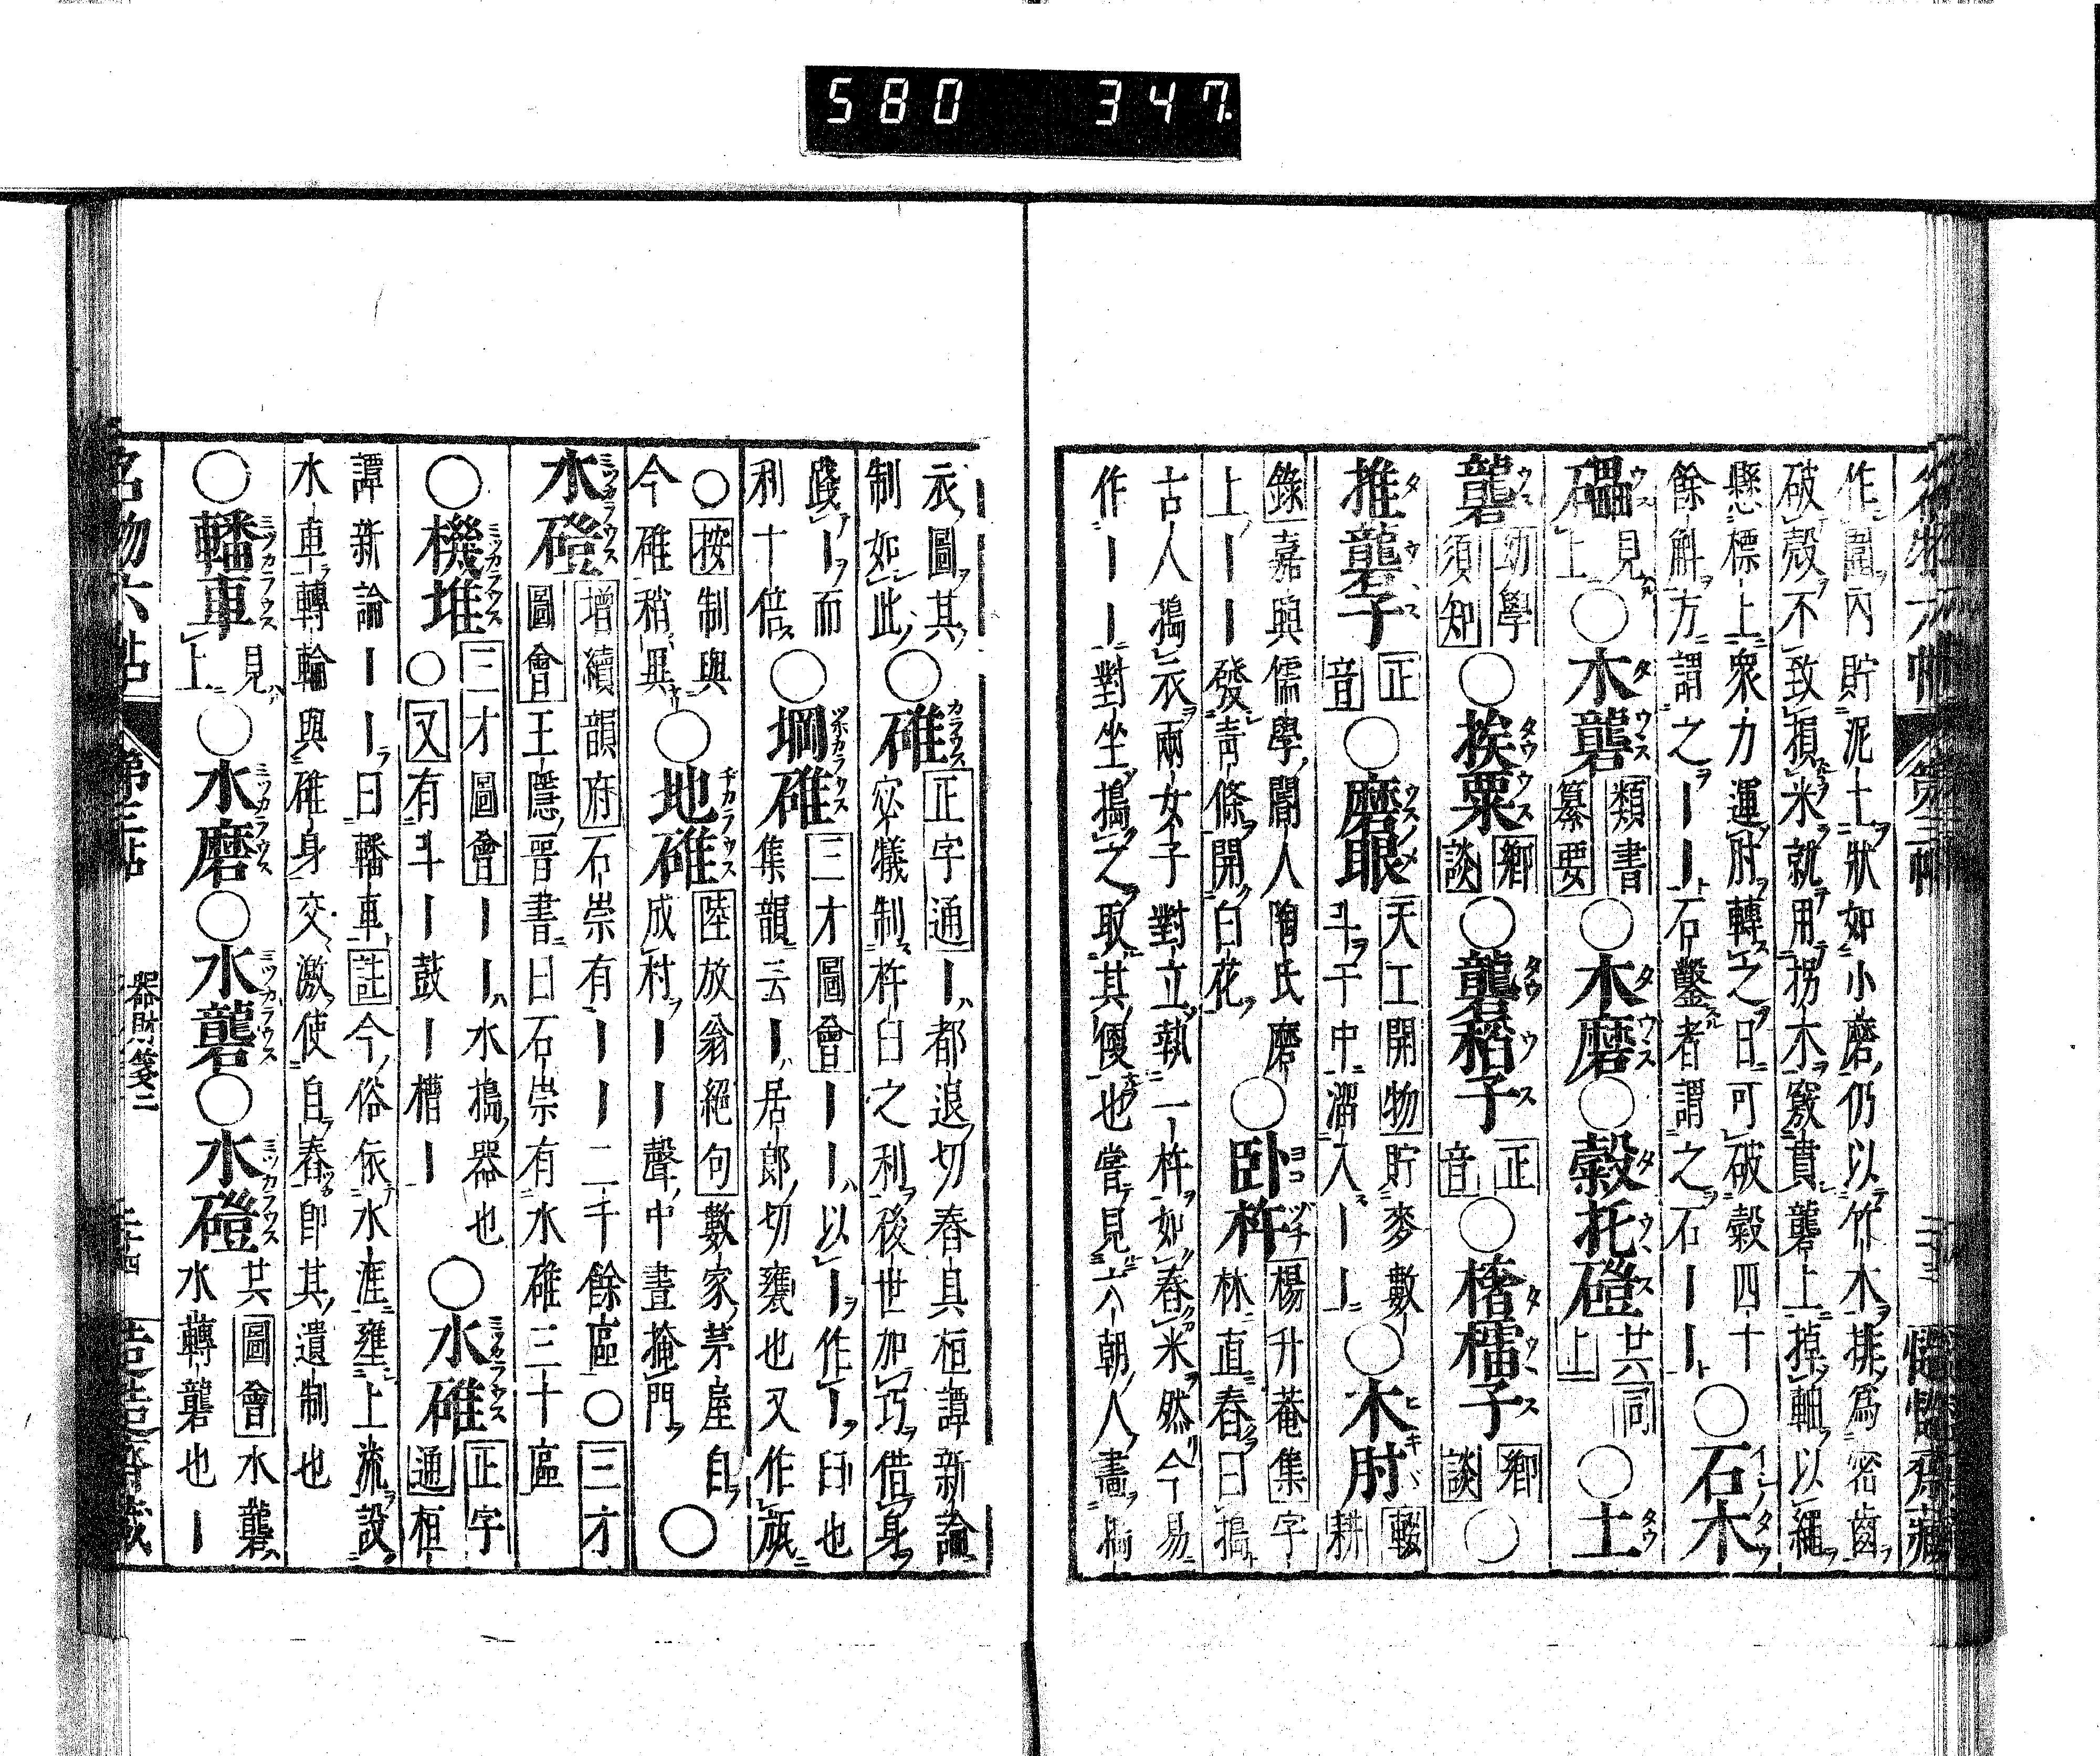 580 347.
作圍内貯泥土狀如小磨仍以竹木排爲密齒
破殼不致損米就用拐木竅貫礱上掉軸以繩
懸標上衆力運肘轉之日可破穀四十
餘斛方謂之ーー石鑿者謂之石ーー○石木
礧見上○木礱類書纂要○木磨○榖托磴共同上○土
礱幼學須知○挨粟鄉談○礱稻子正音○楮檽子鄉談○
推礱子正音○磨眼天工開物貯麥數斗于中溜入ーー○木肘輟耕
錄嘉興儒學閽人陶氏磨○卧杵楊升菴集字林直舂曰搗
上ーー發青條開白花
古人搗衣兩女子對立執一杵如舂米然今易
作ーー對坐搗之取其便也嘗見六朝人畫搗
衣圖其制如此○碓正字通ー都退切舂具桓譚新論
宓犧制杵臼之利後世加巧借身
踐ー而利十倍○堈碓三才圖會ーー以ー作ー臼也
集韻云ー居郎切甕也又作瓨
○按制與今碓稍異○地碓陸放翁絕句數家茅屋自
成村ーー聲中晝掩門○
水磴增續韻府石崇有ーー二千餘區○三才
圖會王隱晉書曰石崇有水碓三十區
○機堆三才圖會ーー水搗器也○又有斗ーー鼓ー槽ー○水碓正字通桓
譚新論ーー曰轓車註今俗依水涯壅上流設
水車轉輪與碓身交激使自舂卽其遺制也
○轓車見上○水磨○水礱○水磴共圖會水礱水轉礱也ー
名物六帖 第三帖 器財箋二